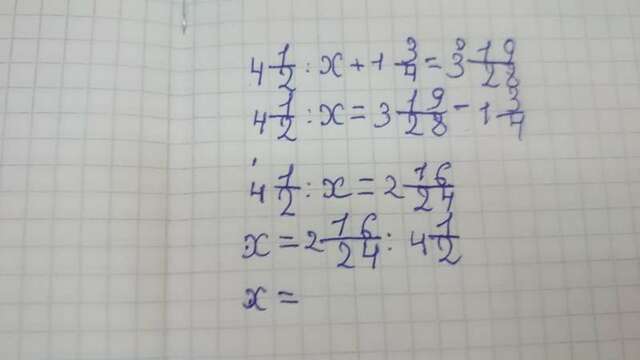 4 1/2 : x + 1 3/4 = 3 19/28
4 1/2 : x = 3 19/28 - 1 3/4
4 1/2 : x = 2 16/24
x = 2 16/24 : 4 1/2
x =